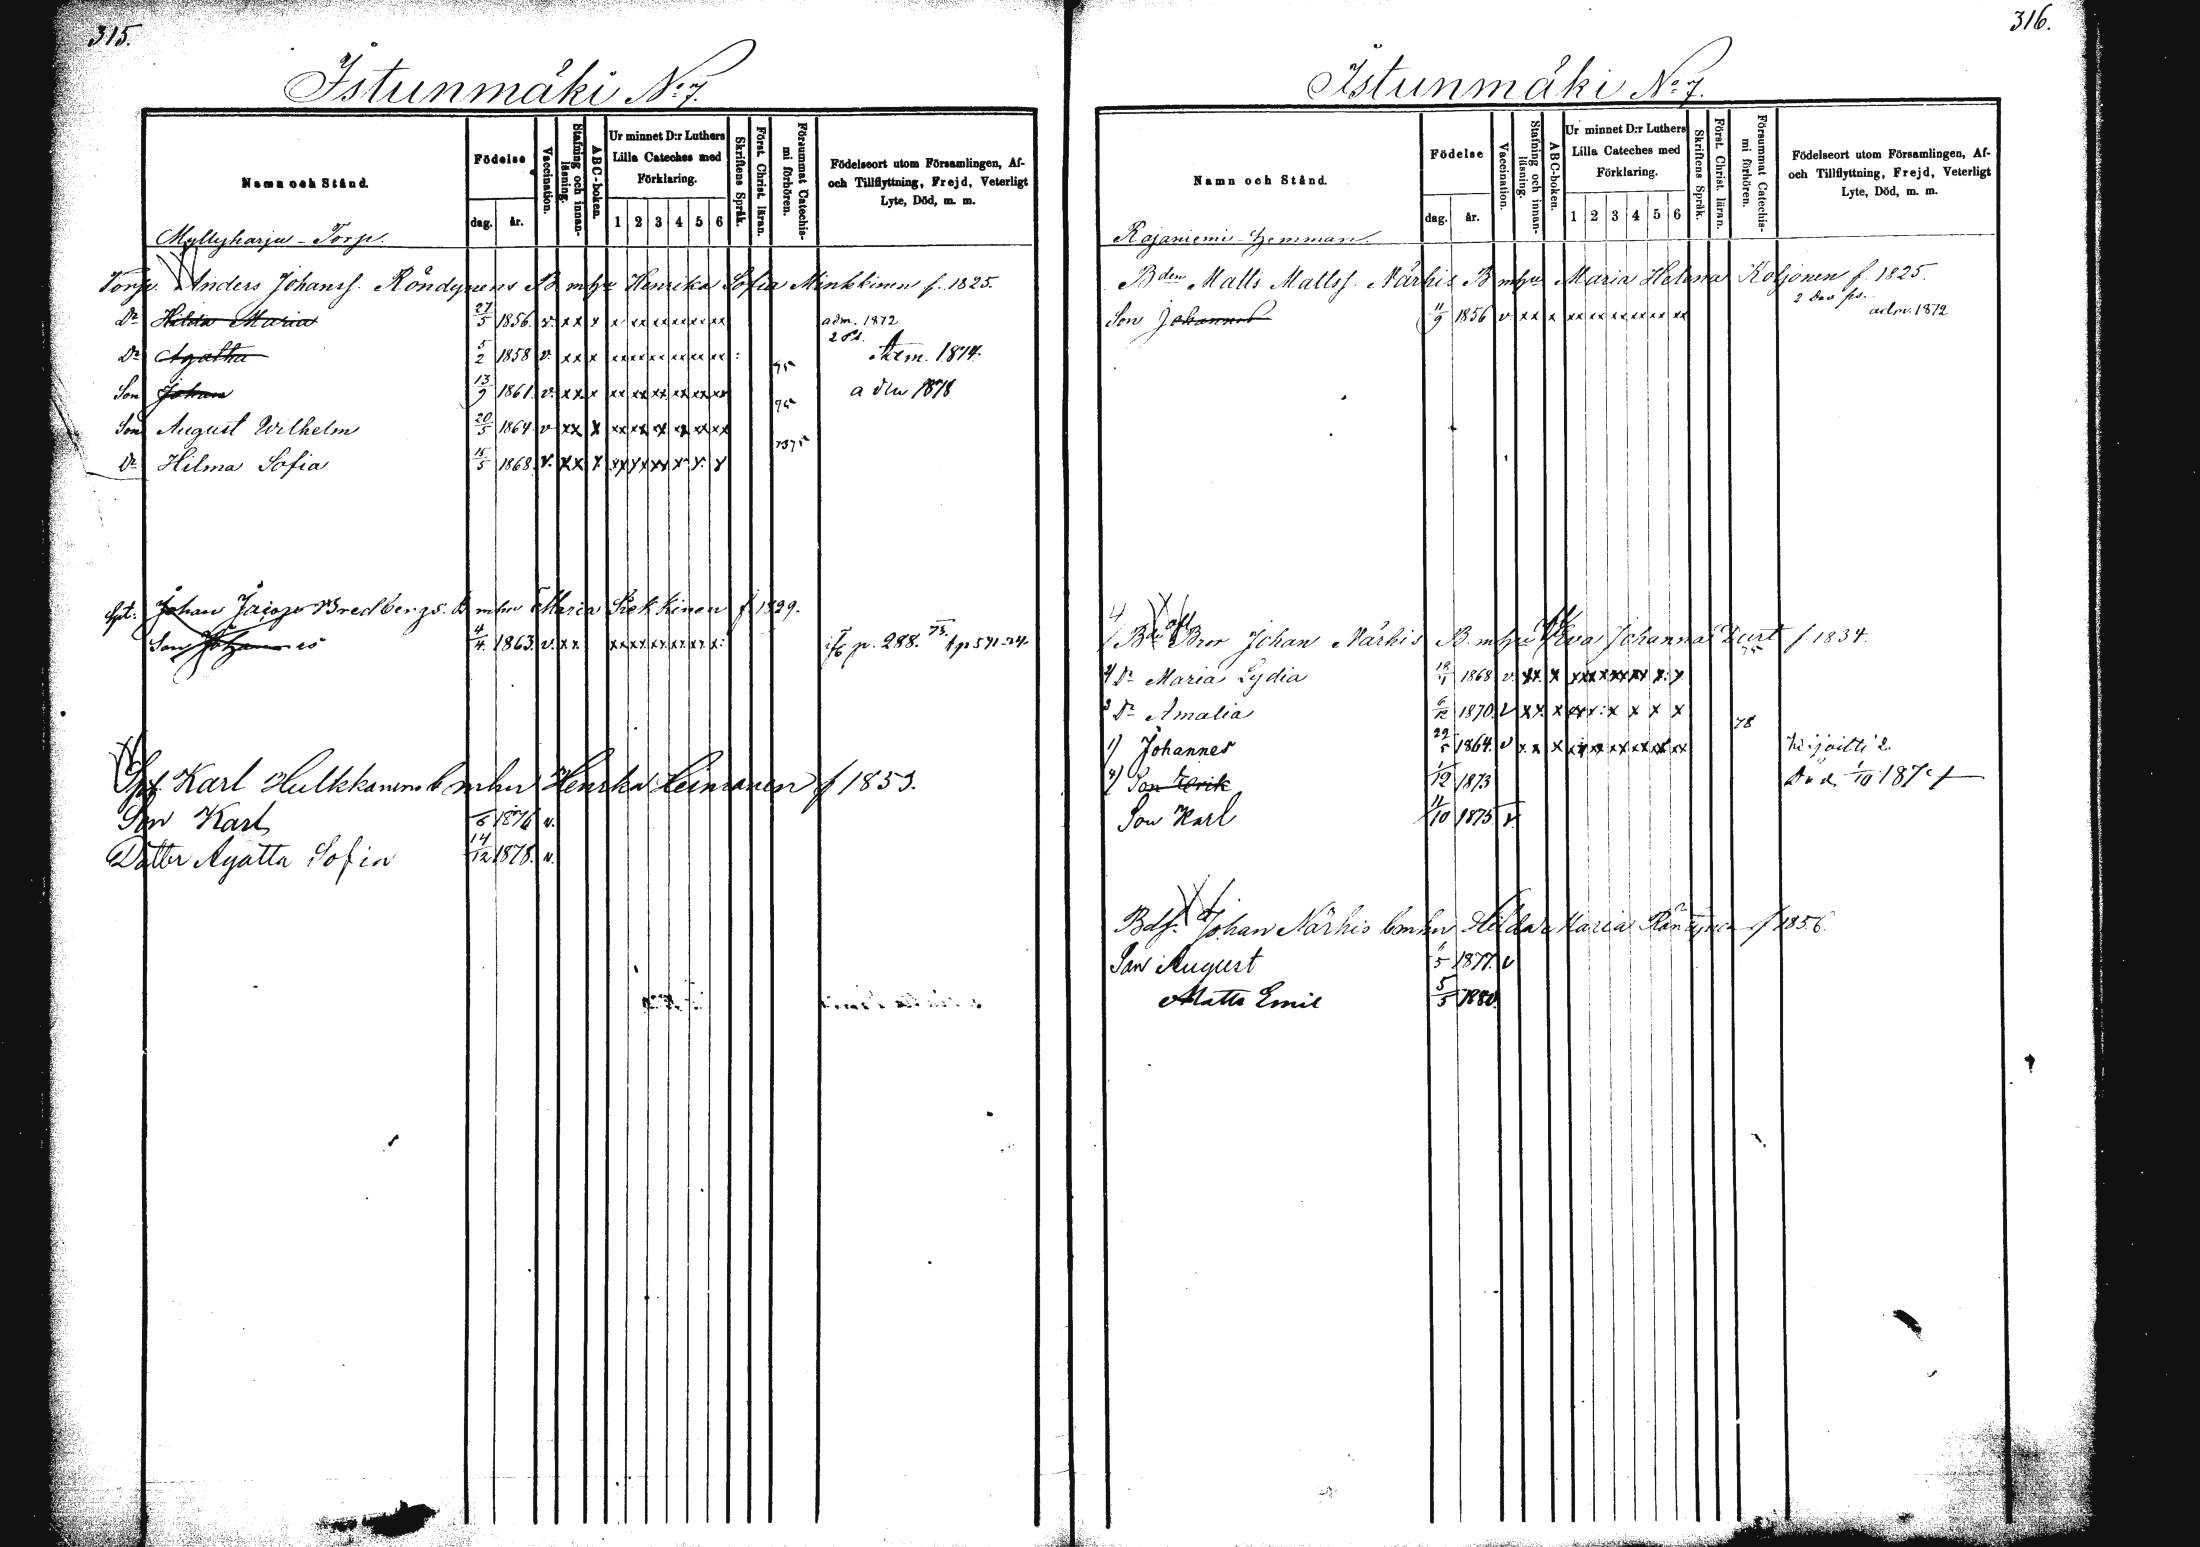 315.
Istunmäki No 7.
Namn och Stånd.
Födelse
dag. år.
Vaccination.
Stafning och innanläsning.
ABC-boken.
Ur minnet D:r Luthers Lilla Cateches med Förklaring.
1 2 3 4 5 6
Skriftens Språk.
Först. Christ. läran.
Försummat Catechismi förhören.
Födelseort utom Församlingen, Af- och Tillflyttning, Frejd, Veterligt Lyte, Död, m. m.
Myllyharju - Torp.
Torp. Anders Johanss. Röndynens B mhu Henrika Sofia Minkkinen f. 1825.
Dr Hilda Maria 27/5 1856. v. xx x x xx xx xx xx xx adm. 1872
Dr Agatha 5/2 1858 v. xx x xx xx xx xx xx xx Adm. 1874.
Son Johan 13/9 1861. v. xx x xx xx xx xx xx xx 75 a dm 1878
Son August Wilhelm 20/5 1864 v xx x xx xx xx xx xx xx 75
Dr Hilma Sofia 15/5 1868. v. xx x xx xx xx x x x 7375
Spt: Johan Bredbergs. B mhu Maria f. 1829.
Son Johannes 4/4 1863. v. xx xx xx xx xx xx x: p. 288. 73.
Karl Hulkkanens b mhu Henrka Leinonen f 1853.
Son Karl /6 1876 v.
Dotter Agatta Sofia 14/12 1878. v.
316.
Istunmäki No 7.
Namn och Stånd.
Födelse
dag. år.
Vaccination.
Stafning och innanläsning.
ABC-boken.
Ur minnet D:r Luthers Lilla Cateches med Förklaring.
1 2 3 4 5 6
Skriftens Språk.
Först. Christ. läran.
Försummat Catechismi förhören.
Födelseort utom Församlingen, Af- och Tillflyttning, Frejd, Veterligt Lyte, Död, m. m.
Rajaniemi - Hemman.
Bden Matts Matts. Närhis B mhu Maria Helena Koljonen f. 1825.
Son Johannes 11/9 1856 v xx x xx xx xx xx xx xx adm. 1872
Bror Johan Närhis B. mhu Eva Johanna f 1834.
Dr Maria Lydia 1868 v. xx x xx x xx xx x. x 75
3 Dr Amalia 6/12 1870. v xx x xx x: x x x x
1) Johannes 29/5 1864. v xx x xx xx xx xx xx xx 78
4) Son Erik 1/12 1873 Död 1/10 187
Son Karl 14/10 1875 v.
Johan Närhis b mhu Hilda Maria f 1856.
Son August 1877. v
Matts Emil 5/5 1880.